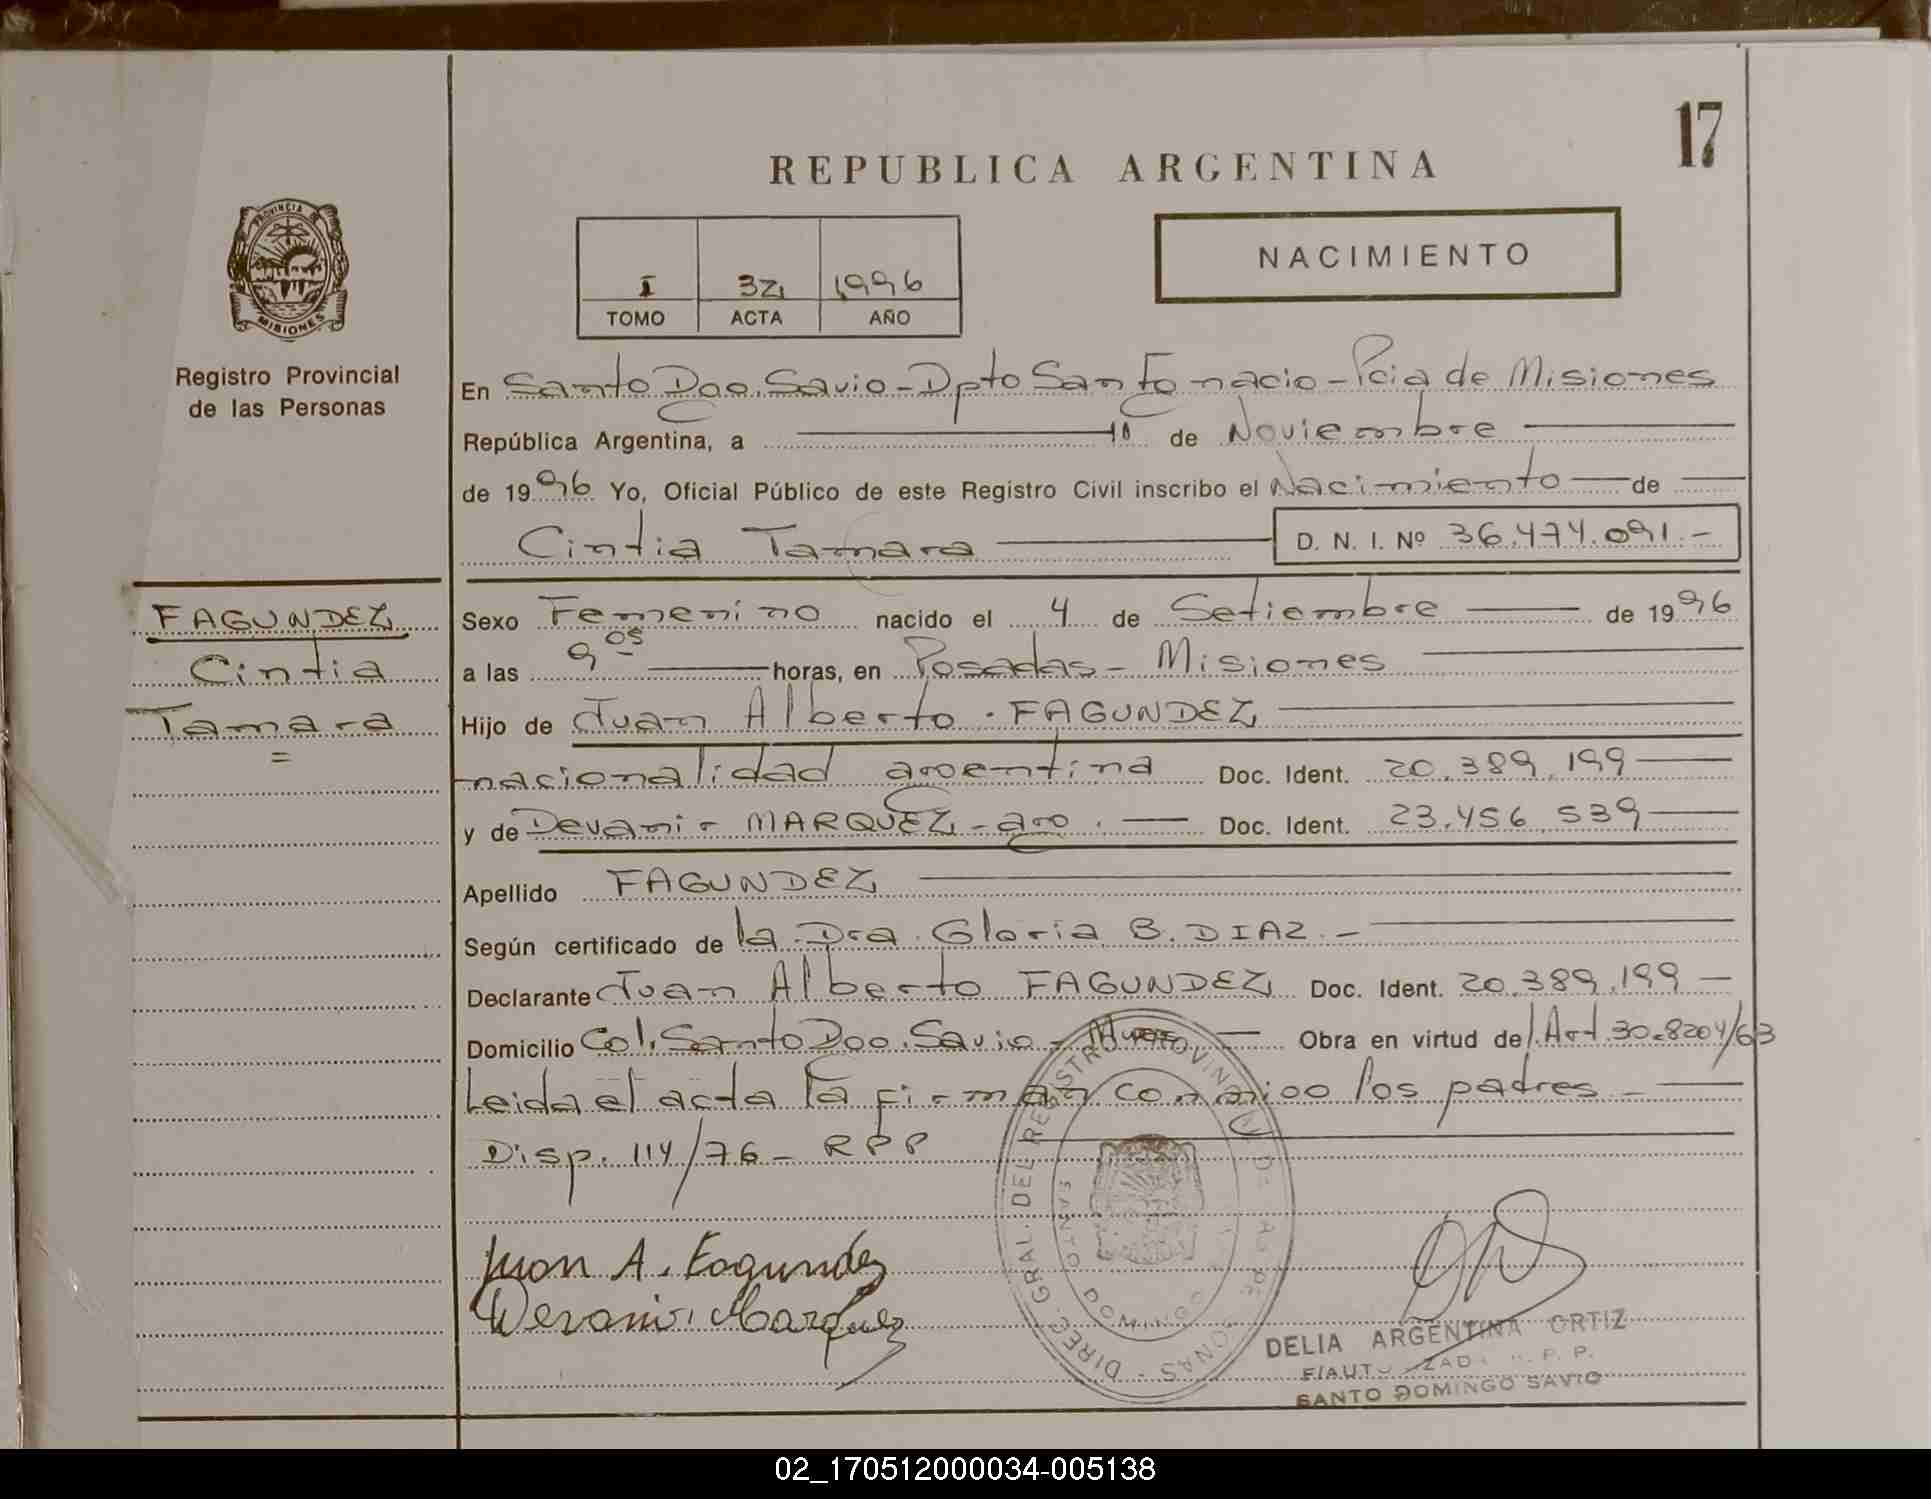 17
REPUBLICA ARGENTINA
PROVINCIA DE
MISIONES
Registro Provincial
de las Personas
I 32 1996
TOMO ACTA AÑO
NACIMIENTO
En Santo Dgo. Savio - Dpto San Ignacio - Pcia de Misiones
República Argentina, a 18 de Noviembre
de 1996 Yo, Oficial Público de este Registro Civil inscribo el Nacimiento de
Cintia Tamara D. N. I. Nº 36.474.091.-
FAGUNDEZ
Cintia
Tamara
Sexo Femenino nacido el 4 de Setiembre de 1996
a las 9 05 horas, en Posadas - Misiones
Hijo de Juan Alberto . FAGUNDEZ
nacionalidad argentina Doc. Ident. 20.389.199
y de Devanir MARQUEZ - arg. Doc. Ident. 23.456.539
Apellido FAGUNDEZ
Según certificado de la Dra. Gloria B. DIAZ. -
Declarante Juan Alberto FAGUNDEZ Doc. Ident. 20.389.199 -
Domicilio Col. Santo Dgo. Savio - Obra en virtud de l. Art. 30-8204/63
Leida el acta la firman conmigo los padres -
Disp. 114/76 - RPP
Juan A. Fagundez
Devanir Marquez
DIREC. GRAL. DEL REGISTRO PROVINCIAL DE LAS PERSONAS
SANTO DOMINGO
DELIA ARGENTINA ORTIZ
SANTO DOMINGO SAVIO
02_170512000034-005138